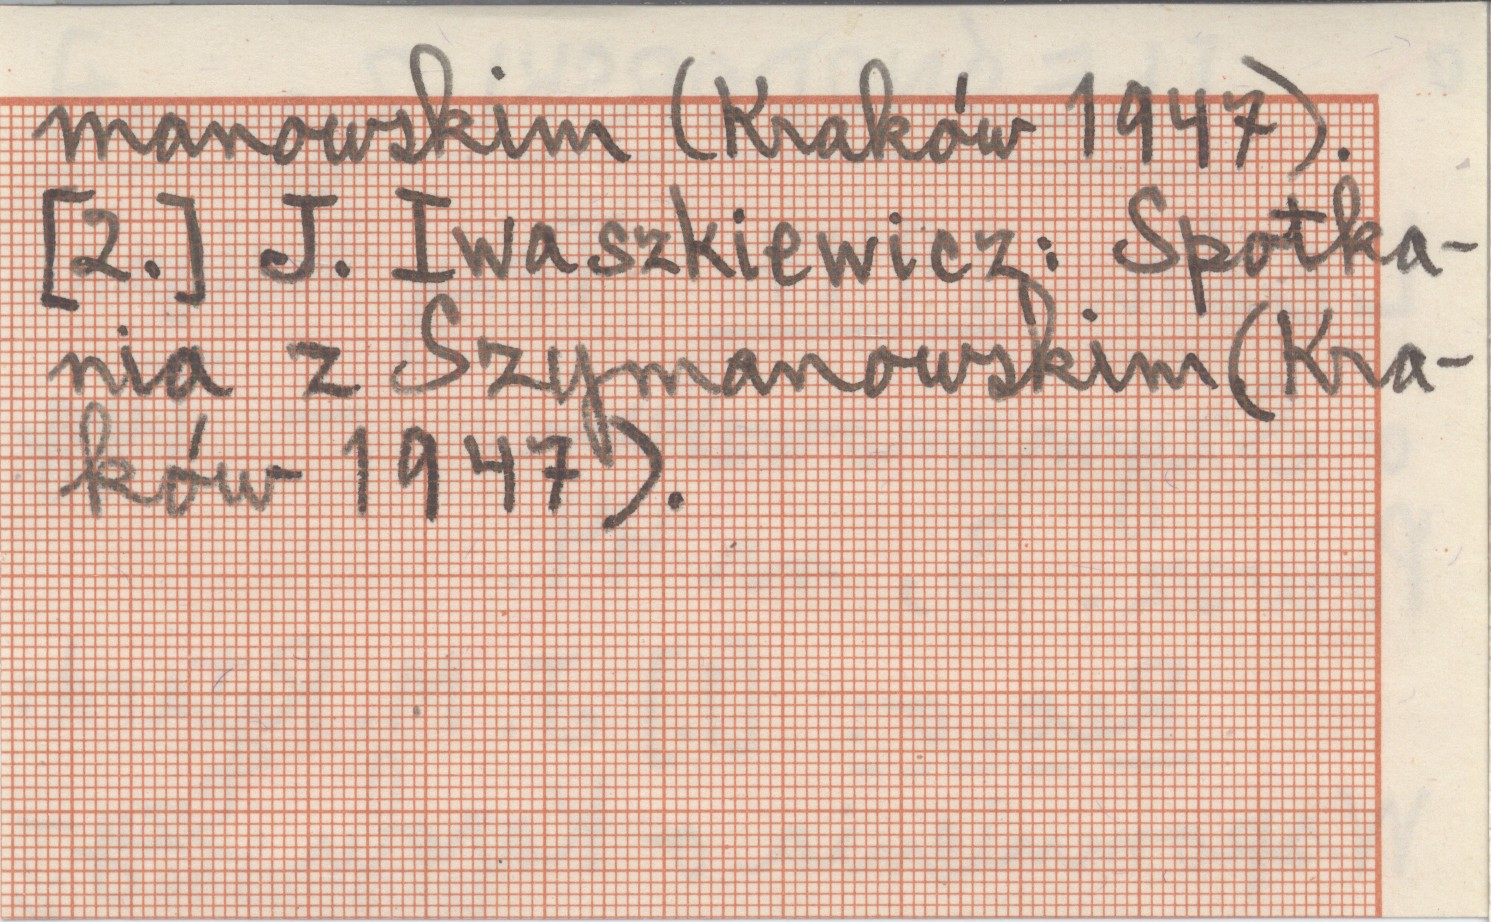 manowskim (Kraków 1947).
[2.] J. Iwaszkiewicz: Spotka-
nia z Szymanowskim (Kra-
ków 1947).